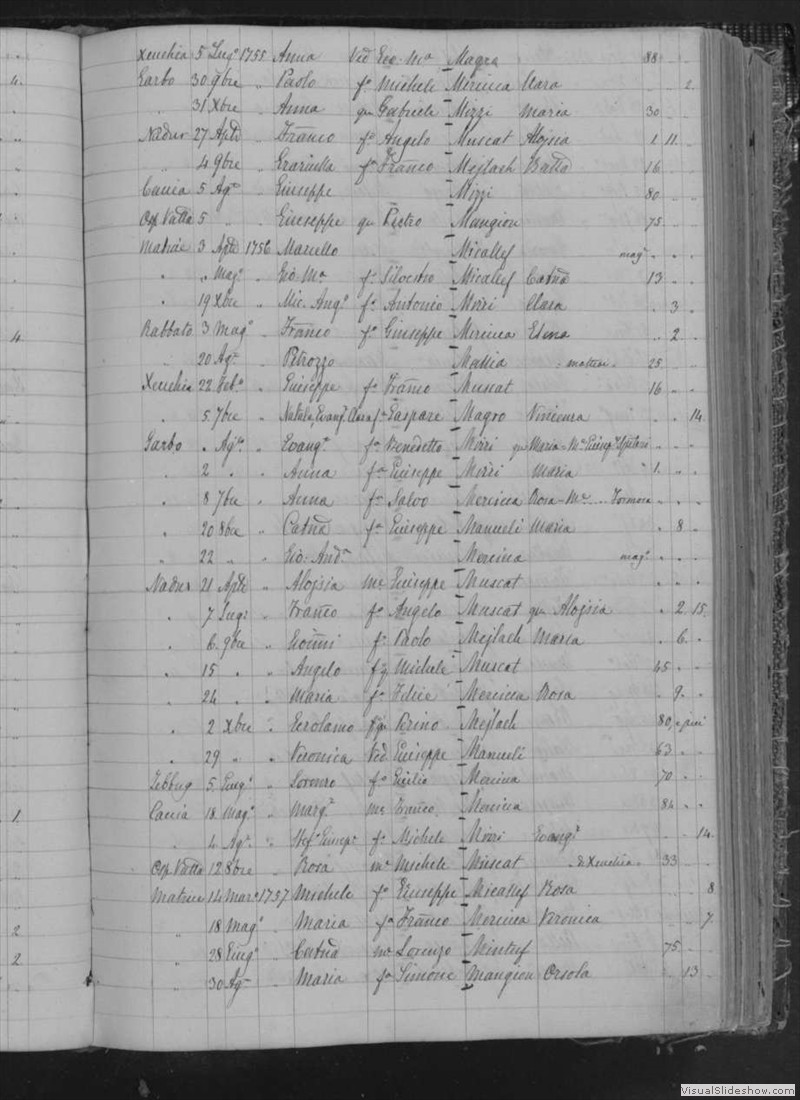 Xeuchia 5 Lug.o 1755 Anna Ved Gio. Ma Magro 88
Garbo 30 9bre " Paolo fo Michele Mercieca Clara 2
31 Xbre " Anna qm Gabriele Mizzi Maria 30
Nadur 27 Aple " Franco fo Angelo Muscat Alojsia 1. 11.
4 9bre " fa Franco Mejlach Batta 16
Caccia 5 Ago " Giuseppe Mizzi 80
Osp. Vietta 5 " " Giuseppe qm Pietro Mangion 75
Matrice 3 Aple 1756 Marcello Micallef mago
" " mago " Gio. Ma fo Silvestro Micallef Catna 13
" 19 Xbre " Mic. Ango fo Antonio Mizzi Clara 3
Rabbato 3 mago " Franco fo Giuseppe Mercieca Elena 2
20 Ago " Petrozzo Mattia 25
Xeuchia 22 Feb.o " Giuseppe fo Franco Muscat 16
" 5 7bre " Natale, Evang. Clara fa Gaspare Magro Vincenza 14
Garbo " Ag.to " Evango fo Benedetto Mizzi qm Maria
" 2 " " Anna fa Giuseppe Mizzi Maria 1.
" 8 7bre " Anna fa Salvo Mercieca Rosa
" 20 8bre " Catna fa Giuseppe Manueli Maria 8
" 22 " " Gio. Anda Mercieca mago
Nadur 21 Aple " Alojsia me Giuseppe Muscat
" 7 Lugo " Franco fo Angelo Muscat qm Alojsia 2 15
" 6. 9bre " fo Paolo Mejlach Maria 6
" 15 " " Angelo Michele Muscat 45
" 24 " " Maria fa Felice Mercieca Rosa 9
" 2 Xbre " Gerolamo Perino Mejlach 80,
" 29 " " Veronica Ved Giuseppe Manueli 63
Zebbug 5 Giugo " Lorenzo fo Mercieca 70
Caccia 18 mago " Marga me Franco Mercieca 84
" 4 Ago " fo Michele Mizzi Evanga 14
Osp. Vietta 12 8bre " Rosa me Michele Muscat di Xeuchia 33
Matrice 14 Marzo 1757 Michele fo Giuseppe Micallef Rosa 8
" 18 mago " Maria fa Franco Mercieca Veronica 7
" 28 Giugo " Catna me Lorenzo Mintuf 75
" 30 Ago " Maria fa Simone Mangion Orsola 13
VisualSlideshow.com